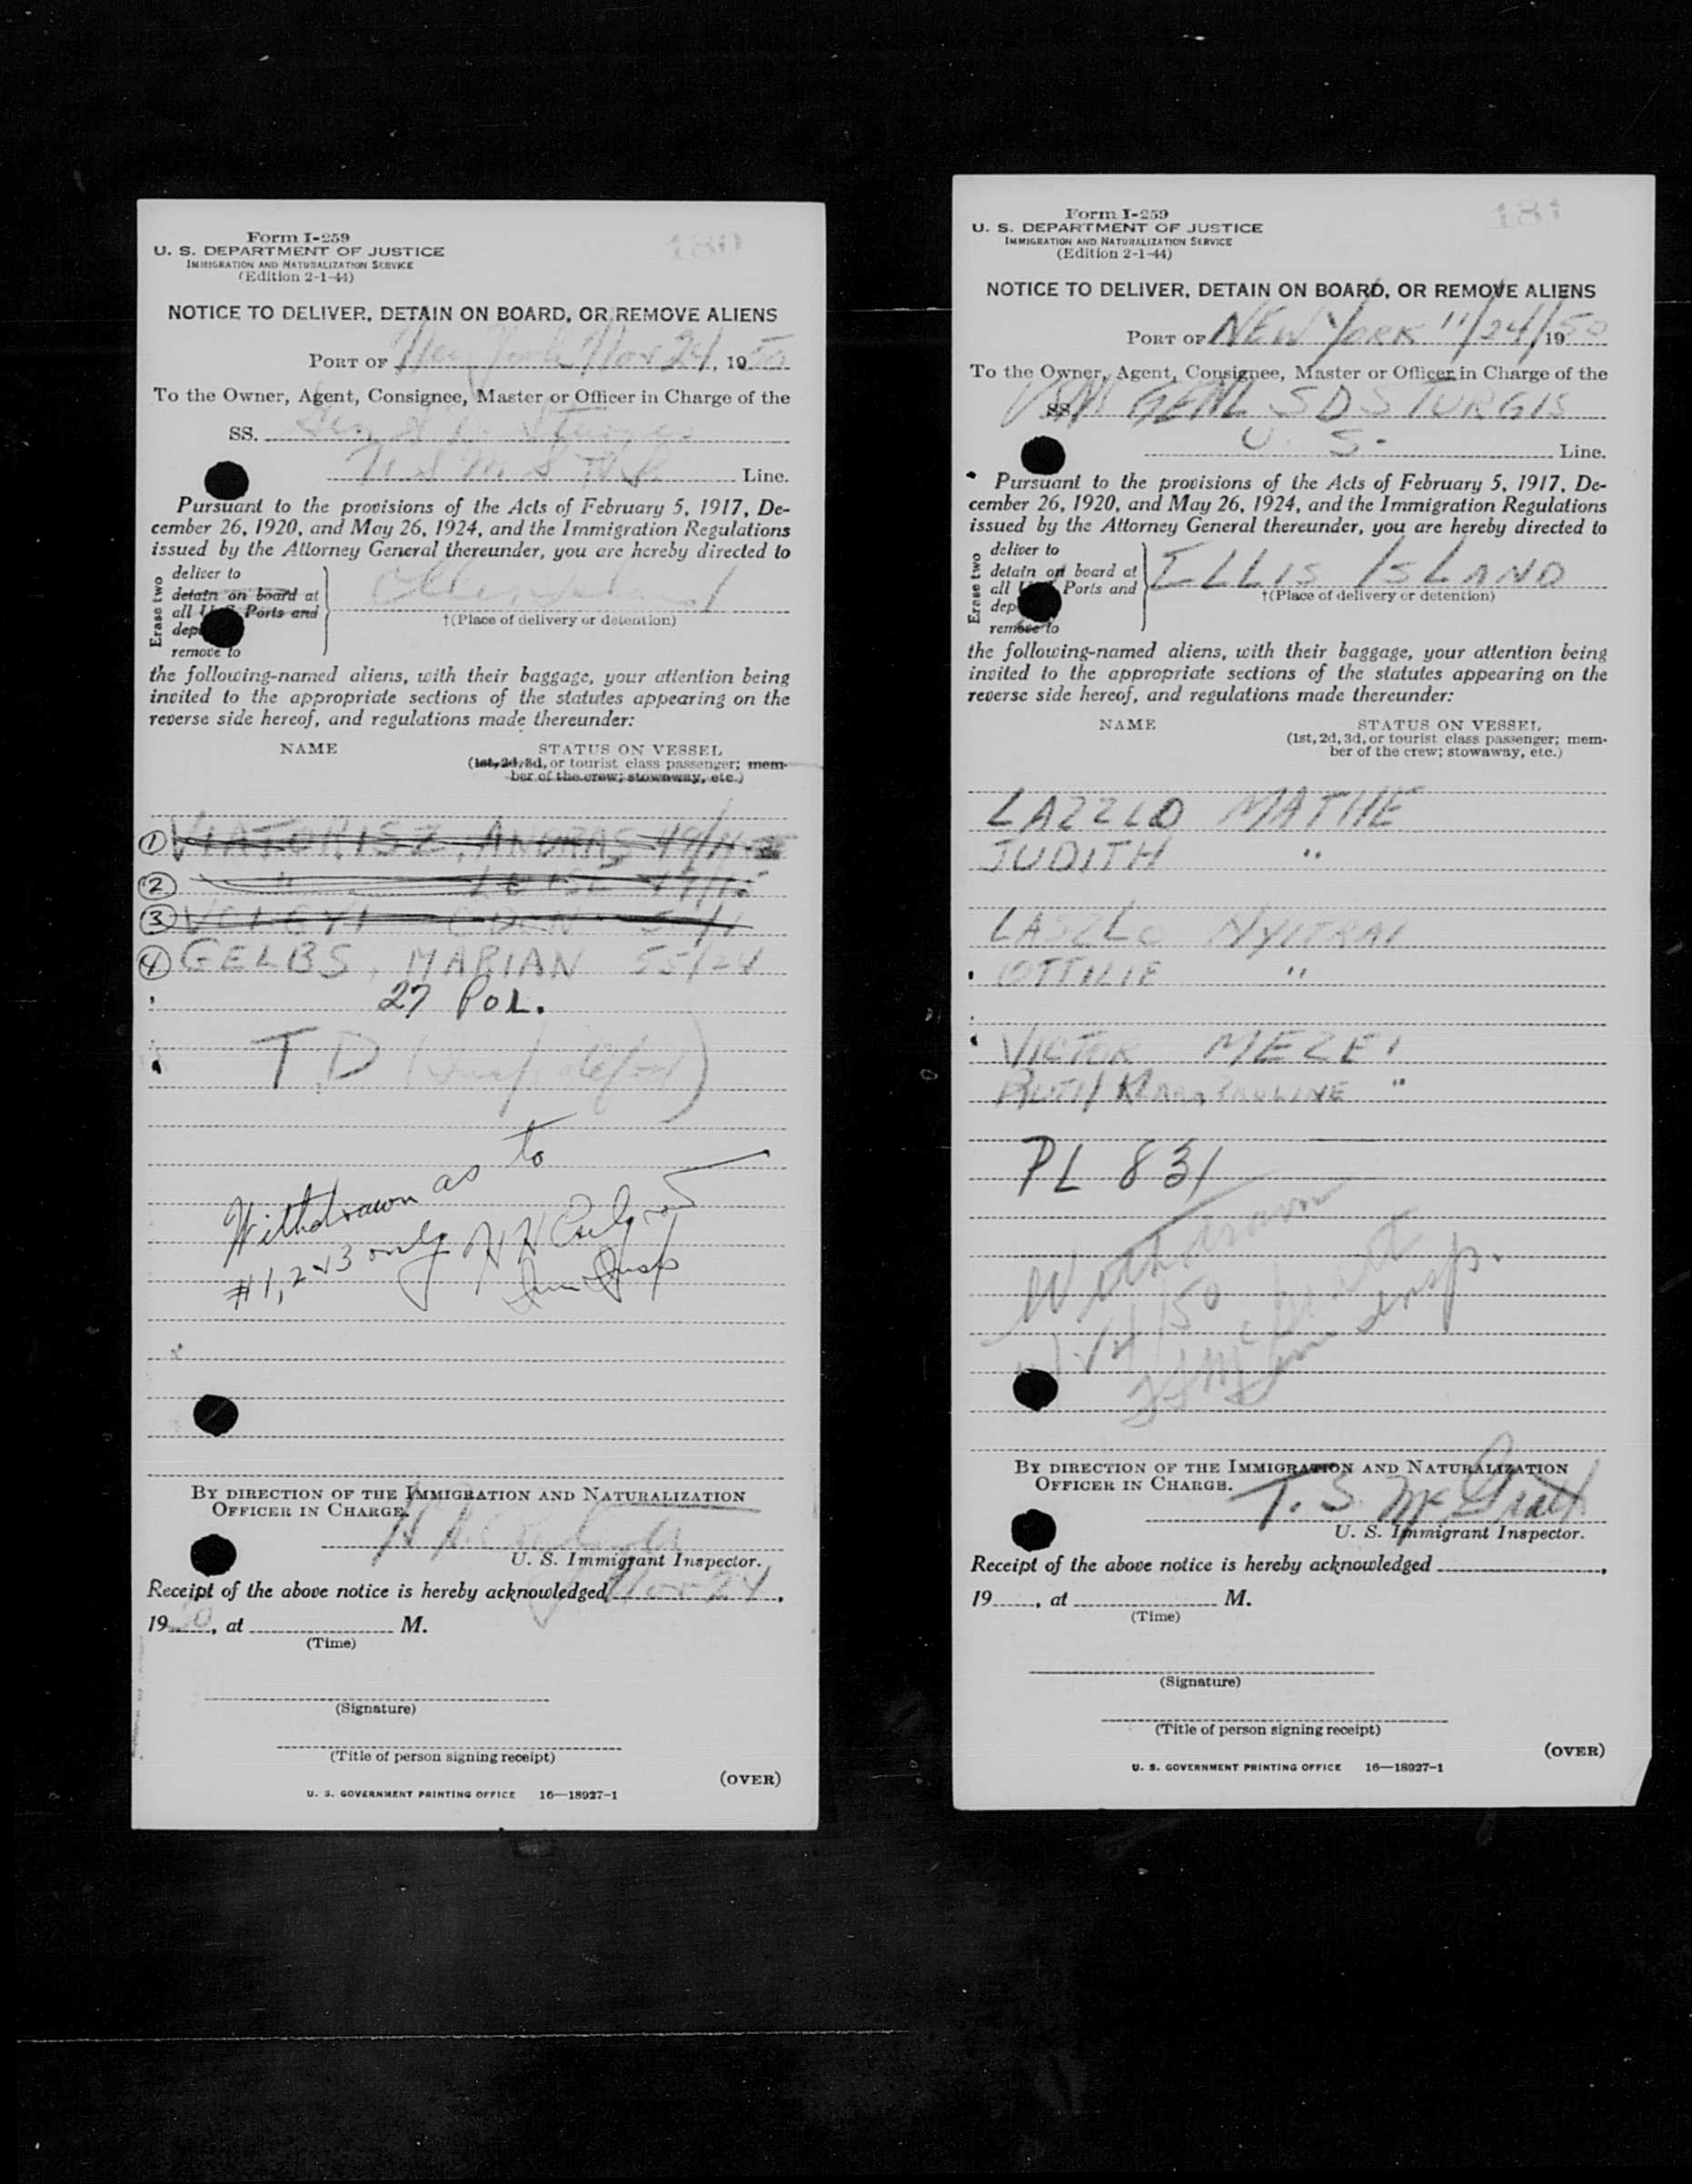 180
Form I-259
U. S. DEPARTMENT OF JUSTICE
IMMIGRATION AND NATURALIZATION SERVICE
(Edition 2-1-44)
NOTICE TO DELIVER, DETAIN ON BOARD, OR REMOVE ALIENS
PORT OF New York Nov 24, 1950
To the Owner, Agent, Consignee, Master or Officer in Charge of the
SS. Gen S D Sturgis
Line.
Pursuant to the provisions of the Acts of February 5, 1917, De-
cember 26, 1920, and May 26, 1924, and the Immigration Regulations
issued by the Attorney General thereunder, you are hereby directed to
Erase two
deliver to
detain on board at
all U.S. Ports and
remove to
Ellis Island
†(Place of delivery or detention)
the following-named aliens, with their baggage, your attention being
invited to the appropriate sections of the statutes appearing on the
reverse side hereof, and regulations made thereunder:
NAME STATUS ON VESSEL
(1st, 2d, 3d, or tourist class passenger; mem-
ber of the crew; stowaway, etc.)
① ANDRAS 49/
② "
③
④ GELBS, MARIAN 55/24
27 POL.
T.D
Withdrawn as to
#1, 2 & 3 only
Imm Insp
BY DIRECTION OF THE IMMIGRATION AND NATURALIZATION
OFFICER IN CHARGE.
U. S. Immigrant Inspector.
Receipt of the above notice is hereby acknowledged Nov 24,
1950, at M.
(Time)
(Signature)
(Title of person signing receipt)
(OVER)
U. S. GOVERNMENT PRINTING OFFICE 16—18927-1
181
Form I-259
U. S. DEPARTMENT OF JUSTICE
IMMIGRATION AND NATURALIZATION SERVICE
(Edition 2-1-44)
NOTICE TO DELIVER, DETAIN ON BOARD, OR REMOVE ALIENS
PORT OF NEW YORK 11/24/1950
To the Owner, Agent, Consignee, Master or Officer in Charge of the
SS. GENL S D STURGIS
U. S. Line.
Pursuant to the provisions of the Acts of February 5, 1917, De-
cember 26, 1920, and May 26, 1924, and the Immigration Regulations
issued by the Attorney General thereunder, you are hereby directed to
Erase two
deliver to
detain on board at
all Ports and
remove to
ELLIS ISLAND
†(Place of delivery or detention)
the following-named aliens, with their baggage, your attention being
invited to the appropriate sections of the statutes appearing on the
reverse side hereof, and regulations made thereunder:
NAME STATUS ON VESSEL
(1st, 2d, 3d, or tourist class passenger; mem-
ber of the crew; stowaway, etc.)
LAZZLO MATHE
JUDITH "
LASZLO NYITRAI
OTTILIE "
VICTOR MEZEI
RUTH KLARA PAULINE "
PL 831
Withdrawn
Imm insp.
BY DIRECTION OF THE IMMIGRATION AND NATURALIZATION
OFFICER IN CHARGE.
T. S. McGrath
U. S. Immigrant Inspector.
Receipt of the above notice is hereby acknowledged ,
19 , at M.
(Time)
(Signature)
(Title of person signing receipt)
(OVER)
U. S. GOVERNMENT PRINTING OFFICE 16—18927-1